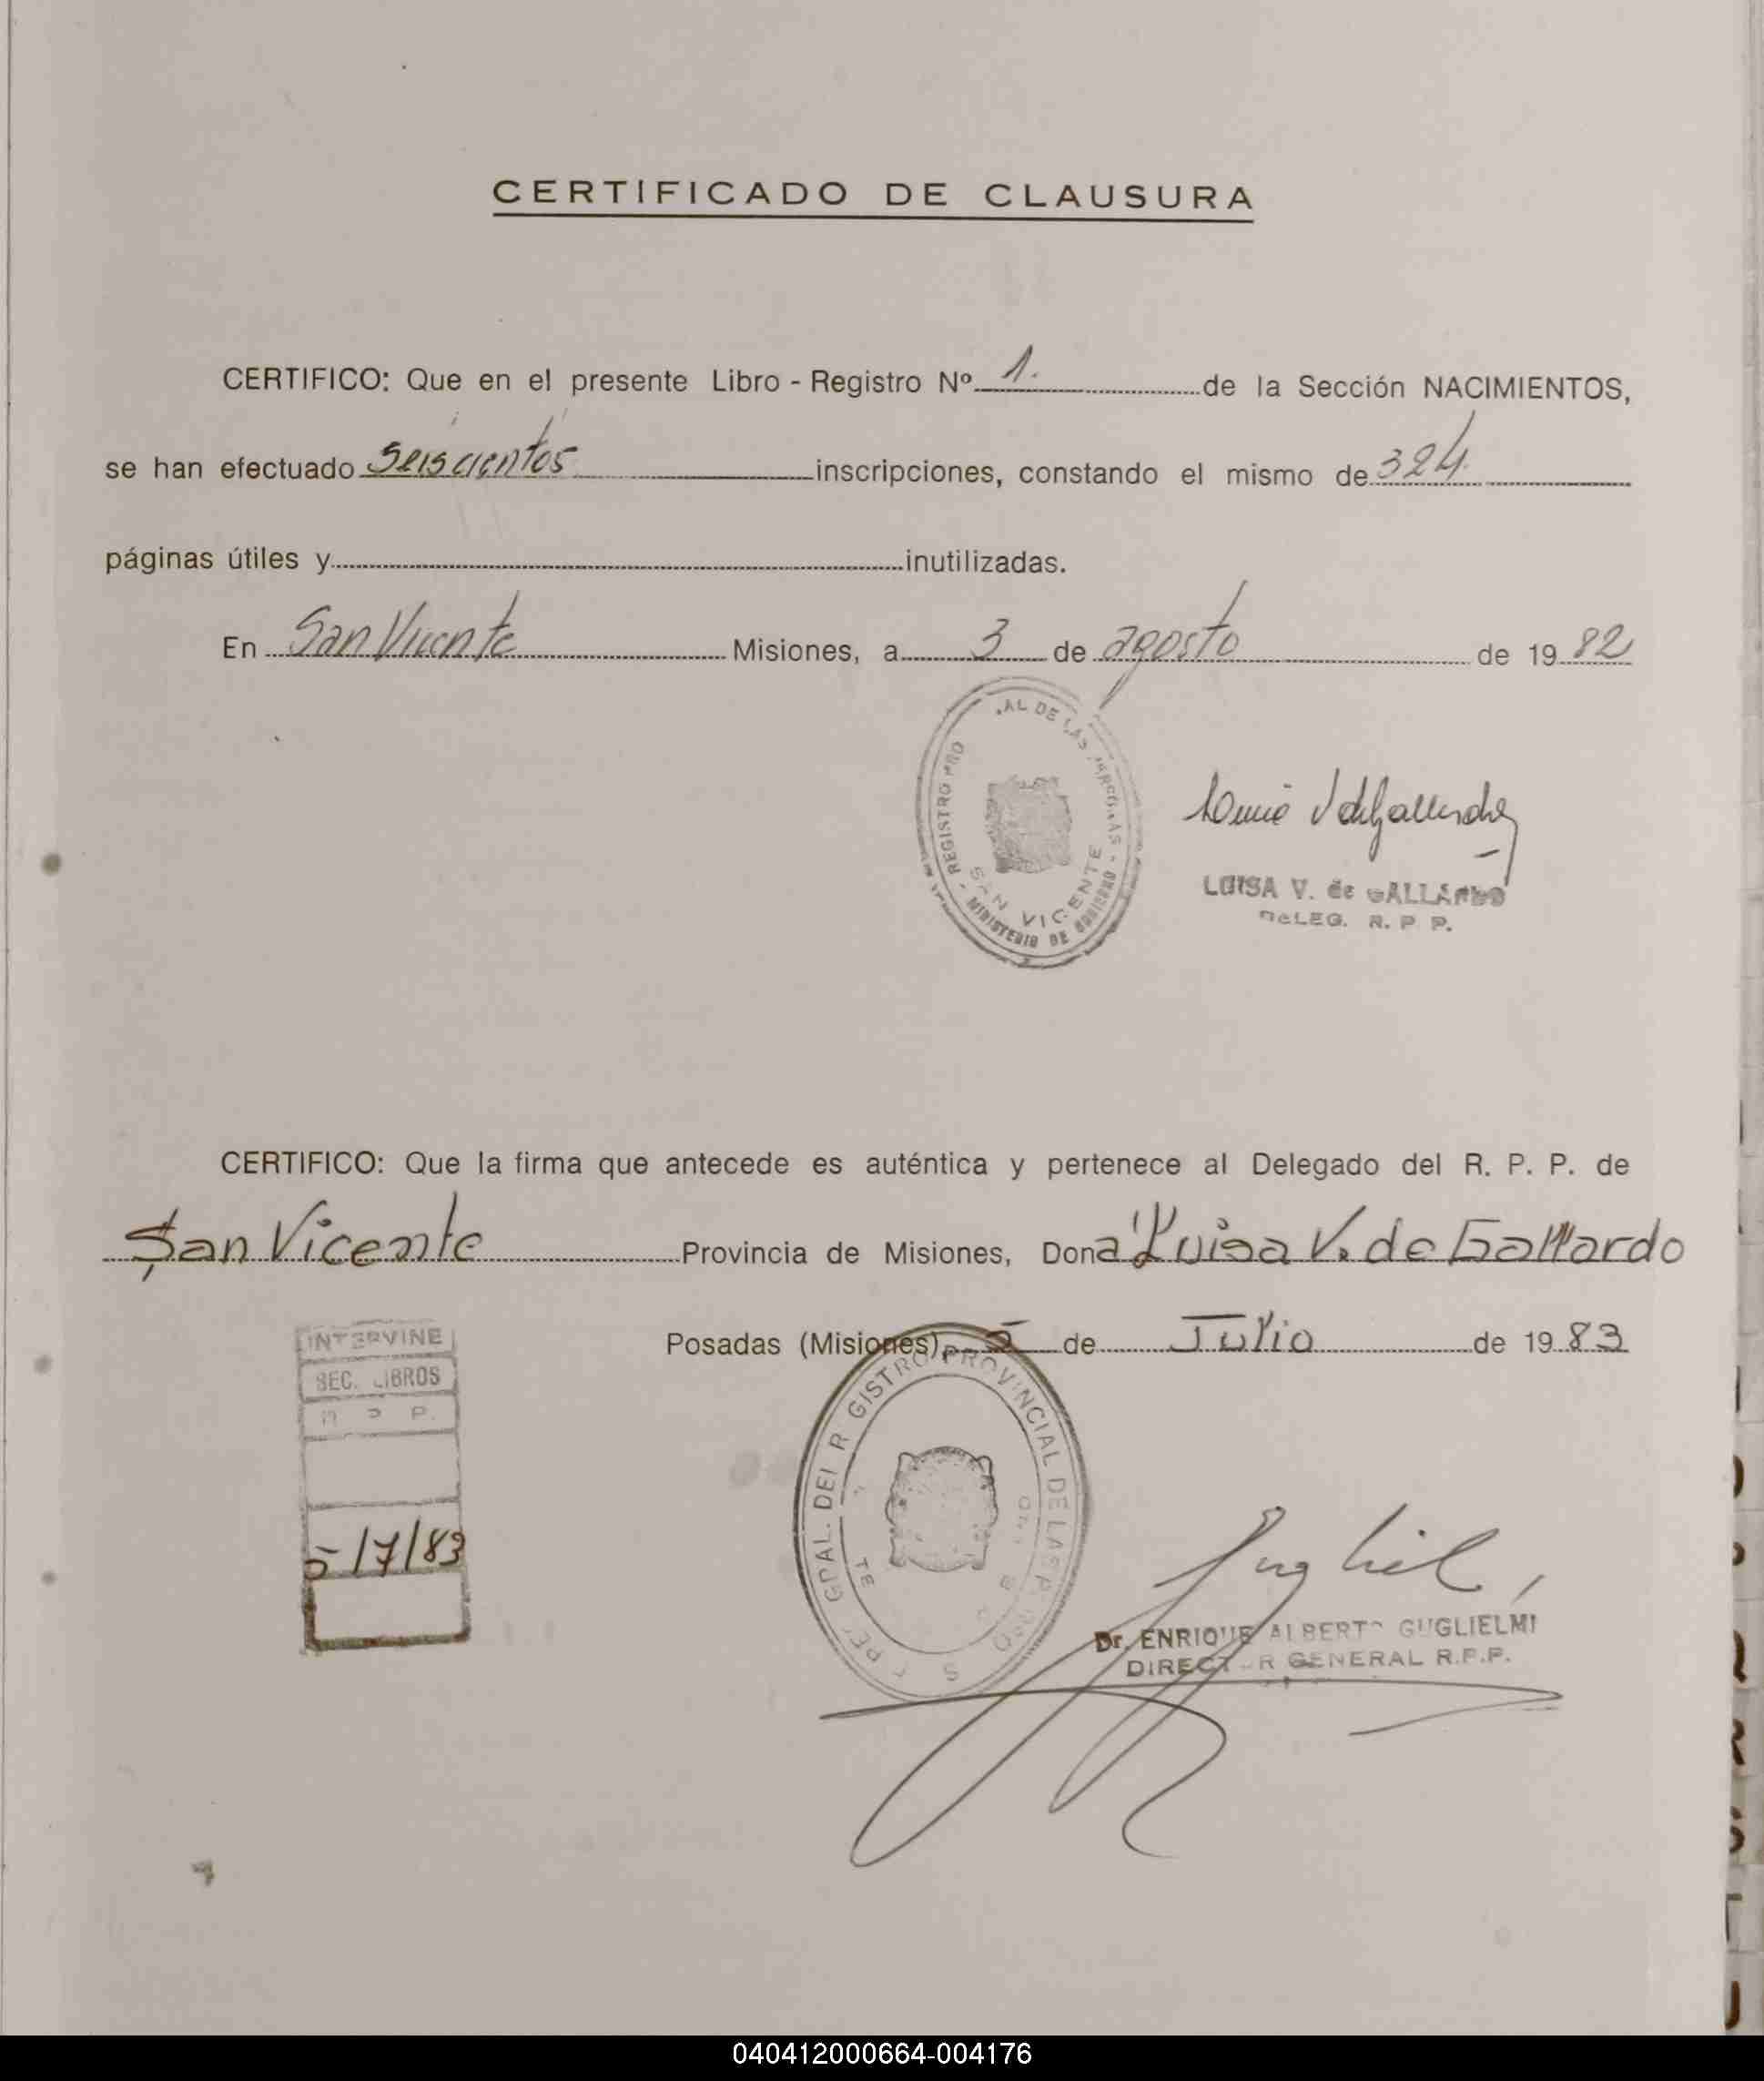 CERTIFICADO DE CLAUSURA
CERTIFICO: Que en el presente Libro - Registro Nº 1. de la Sección NACIMIENTOS,
se han efectuado seiscientos inscripciones, constando el mismo de 324
páginas útiles y inutilizadas.
En San Vicente Misiones, a 3 de agosto de 1982
REGISTRO PRO AL DE LAS PERSONAS - MINISTERIO DE GOBIERNO
SAN VICENTE
LUISA V. de GALLARDO
DELEG. R. P. P.
CERTIFICO: Que la firma que antecede es auténtica y pertenece al Delegado del R. P. P. de
San Vicente Provincia de Misiones, Dona Luisa V. de Gallardo
Posadas (Misiones), 5 de Julio de 1983
INTERVINE
SEC. LIBROS
R P P.
5/7/83
GRAL. DEL R GISTRO PROVINCIAL DE LAS P
Dr. ENRIQUE ALBERTO GUGLIELMI
DIRECTOR GENERAL R.P.P.
040412000664-004176